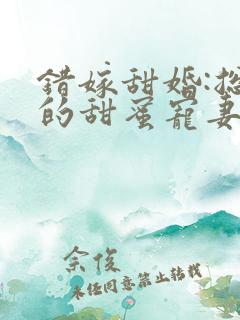 错嫁甜婚:总
的甜蜜宠妻
佘俊
未经同意禁止转载